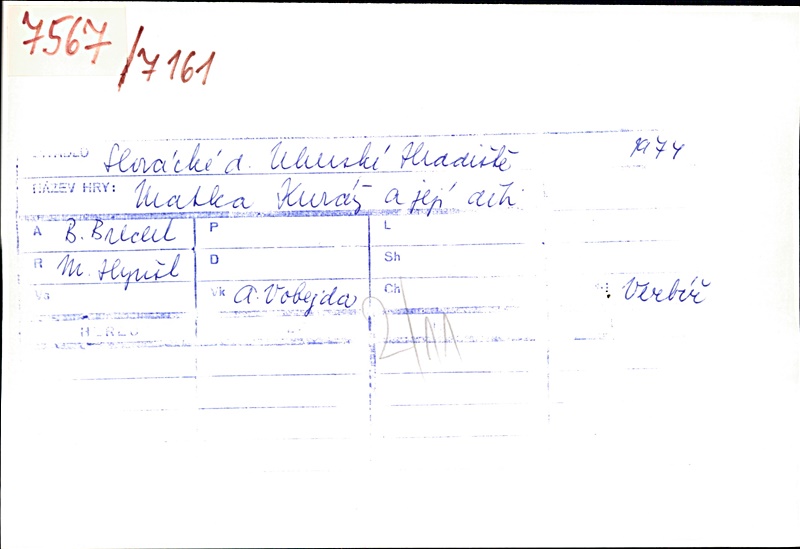 7567/7161
DIVADLO Slovácké d. Uherské Hradiště 1974
NÁZEV HRY: Matka Kuráž a její děti
A B. Brecht P L
R M. Hynšt D Sh
Vs Vk A. Vobejda Ch Verbíř
HEREC
2/